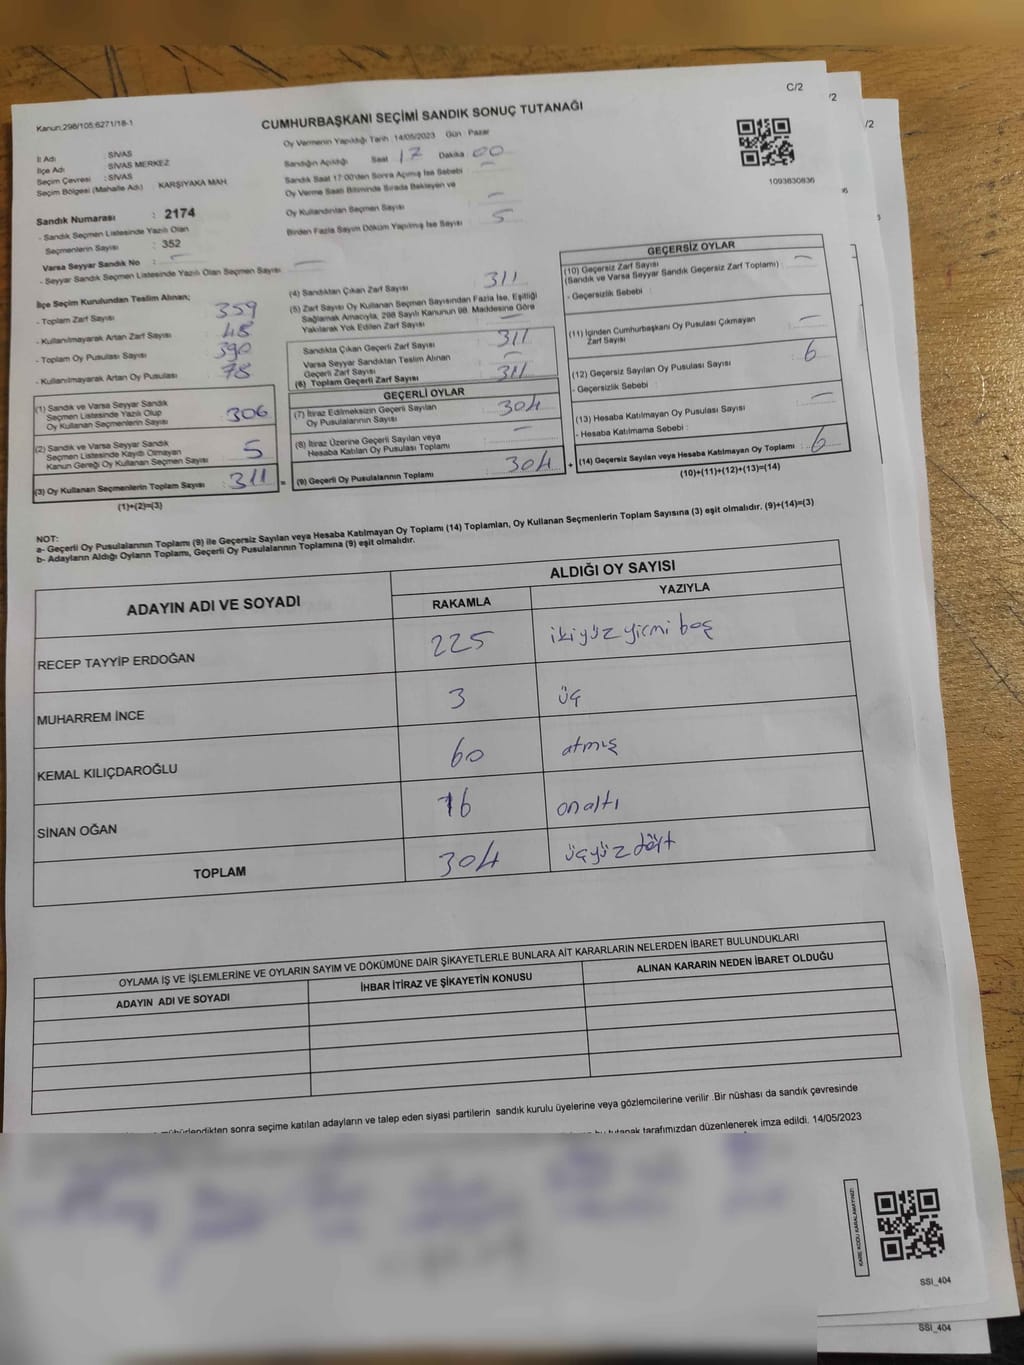 C/2
/2
/2
Kanun:298/105;6271/18-1
CUMHURBAŞKANI SEÇİMİ SANDIK SONUÇ TUTANAĞI
Oy Vermenin Yapıldığı Tarih 14/05/2023 Gün Pazar
İl Adı : SİVAS
İlçe Adı : SİVAS MERKEZ
Seçim Çevresi : SİVAS
Seçim Bölgesi (Mahalle Adı) KARŞIYAKA MAH.
Sandığın Açıldığı Saat 17 Dakika 00
Sandık Saat 17:00'den Sonra Açılmış İse Sebebi
Oy Verme Saati Bitiminde Sırada Bekleyen ve
Oy Kullandırılan Seçmen Sayısı –
Birden Fazla Sayım Döküm Yapılmış İse Sayısı 5
1093630836
Sandık Numarası : 2174
- Sandık Seçmen Listesinde Yazılı Olan
Seçmenlerin Sayısı : 352
Varsa Seyyar Sandık No : –
- Seyyar Sandık Seçmen Listesinde Yazılı Olan Seçmen Sayısı –
İlçe Seçim Kurulundan Teslim Alınan;
- Toplam Zarf Sayısı 359
- Kullanılmayarak Artan Zarf Sayısı 48
- Toplam Oy Pusulası Sayısı 390
- Kullanılmayarak Artan Oy Pusulası 78
(1) Sandık ve Varsa Seyyar Sandık
Seçmen Listesinde Yazılı Olup
Oy Kullanan Seçmenlerin Sayısı 306
(2) Sandık ve Varsa Seyyar Sandık
Seçmen Listesinde Kaydı Olmayan
Kanun Gereği Oy Kullanan Seçmen Sayısı 5
(3) Oy Kullanan Seçmenlerin Toplam Sayısı : 311 =
(1)+(2)=(3)
(4) Sandıktan Çıkan Zarf Sayısı 311
(5) Zarf Sayısı Oy Kullanan Seçmen Sayısından Fazla İse, Eşitliği
Sağlamak Amacıyla, 298 Sayılı Kanunun 98. Maddesine Göre
Yakılarak Yok Edilen Zarf Sayısı –
Sandıkta Çıkan Geçerli Zarf Sayısı 311
Varsa Seyyar Sandıktan Teslim Alınan
Geçerli Zarf Sayısı –
(6) Toplam Geçerli Zarf Sayısı 311
GEÇERLİ OYLAR
(7) İtiraz Edilmeksizin Geçerli Sayılan
Oy Pusulalarının Sayısı 304
(8) İtiraz Üzerine Geçerli Sayılan veya
Hesaba Katılan Oy Pusulası Toplamı –
(9) Geçerli Oy Pusulalarının Toplamı : 304 +
GEÇERSİZ OYLAR
(10) Geçersiz Zarf Sayısı
(Sandık ve Varsa Seyyar Sandık Geçersiz Zarf Toplamı) –
- Geçersizlik Sebebi :
(11) İçinden Cumhurbaşkanı Oy Pusulası Çıkmayan
Zarf Sayısı –
(12) Geçersiz Sayılan Oy Pusulası Sayısı 6
- Geçersizlik Sebebi :
(13) Hesaba Katılmayan Oy Pusulası Sayısı –
- Hesaba Katılmama Sebebi :
(14) Geçersiz Sayılan veya Hesaba Katılmayan Oy Toplamı : 6
(10)+(11)+(12)+(13)=(14)
NOT:
a- Geçerli Oy Pusulalarının Toplamı (9) ile Geçersiz Sayılan veya Hesaba Katılmayan Oy Toplamı (14) Toplamları, Oy Kullanan Seçmenlerin Toplam Sayısına (3) eşit olmalıdır. (9)+(14)=(3)
b- Adayların Aldığı Oyların Toplamı, Geçerli Oy Pusulalarının Toplamına (9) eşit olmalıdır.
ADAYIN ADI VE SOYADI ALDIĞI OY SAYISI
RAKAMLA YAZIYLA
RECEP TAYYİP ERDOĞAN 225 ikiyüz yirmi beş
MUHARREM İNCE 3 üç
KEMAL KILIÇDAROĞLU 60 atmış
SİNAN OĞAN 16 onaltı
TOPLAM 304 üçyüz dört
OYLAMA İŞ VE İŞLEMLERİNE VE OYLARIN SAYIM VE DÖKÜMÜNE DAİR ŞİKAYETLERLE BUNLARA AİT KARARLARIN NELERDEN İBARET BULUNDUKLARI
ADAYIN ADI VE SOYADI İHBAR İTİRAZ VE ŞİKAYETİN KONUSU ALINAN KARARIN NEDEN İBARET OLDUĞU
mühürlendikten sonra seçime katılan adayların ve talep eden siyasi partilerin sandık kurulu üyelerine veya gözlemcilerine verilir .Bir nüshası da sandık çevresinde
bu tutanak tarafımızdan düzenlenerek imza edildi. 14/05/2023
KARE KODU KARALAMAYINIZ!
SSİ_404
SSİ_404